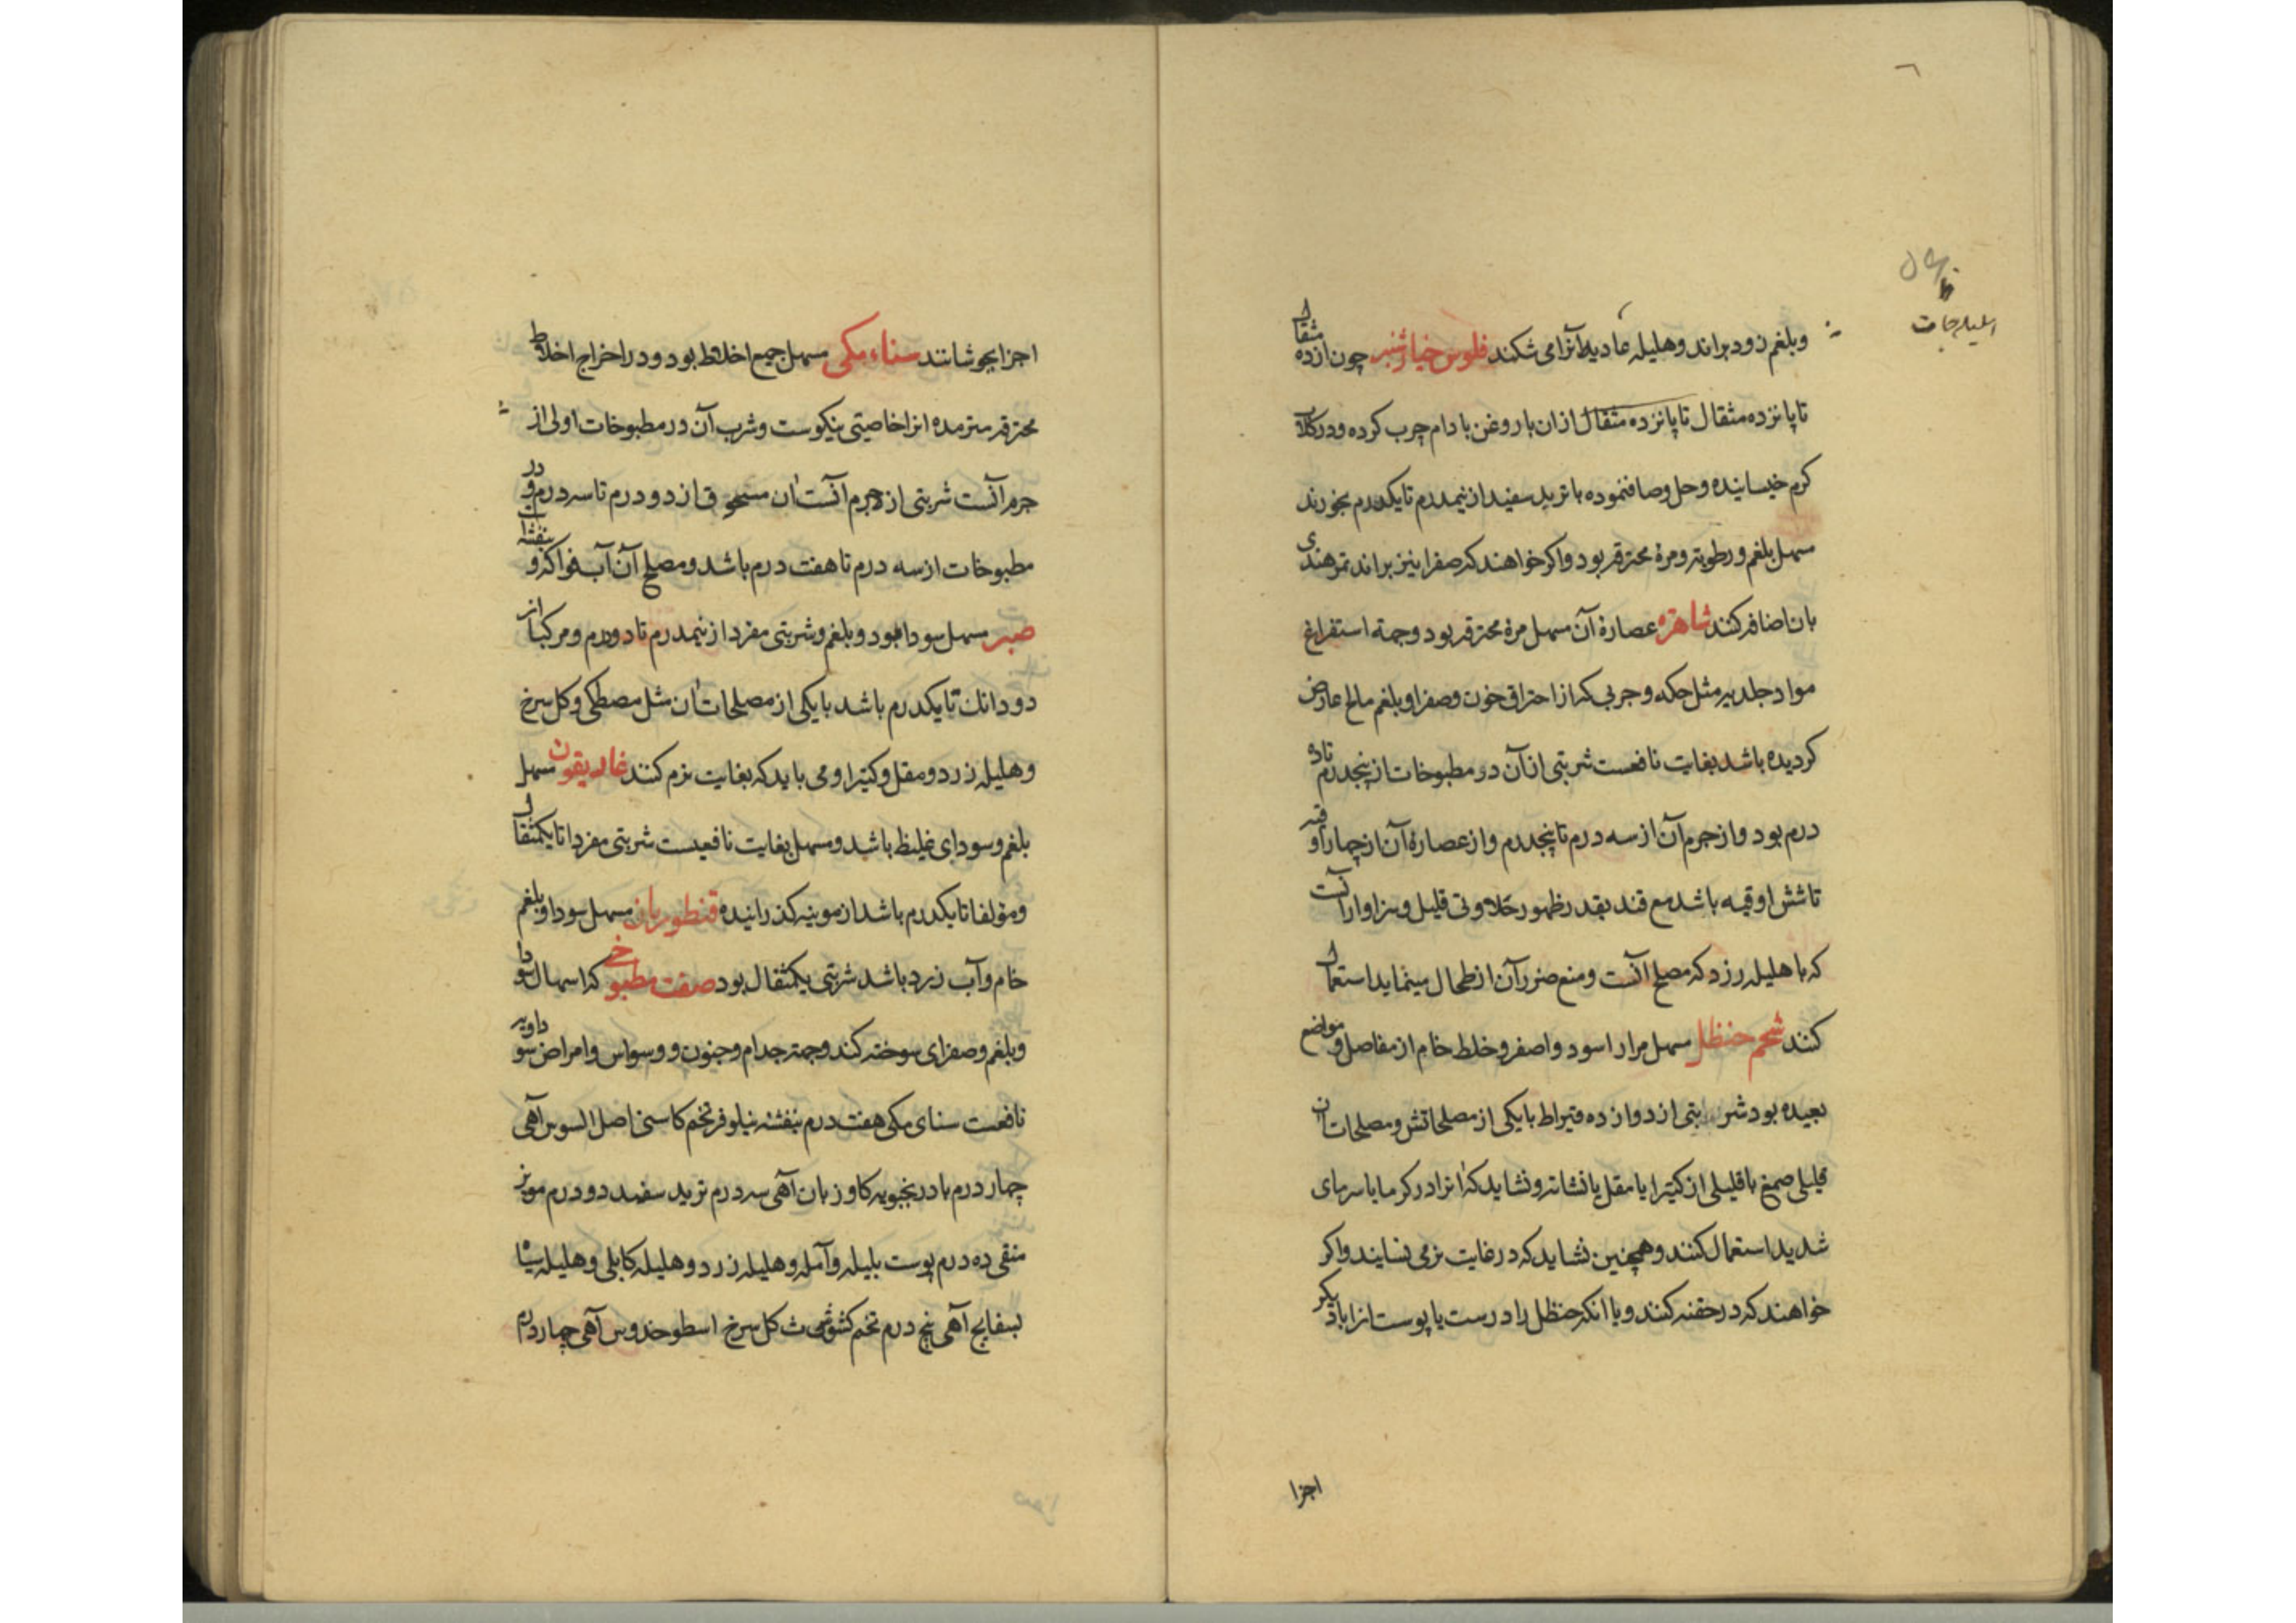 وبلغم زود براند وهلیله عادیه آنرا می شکند فلوس خیارشنبر چون ازده مثقال
تا پانزده مثقال تا پانزده مثقال ازان با روغن بادام چرب کرده ودر کلاب
کرم خیسانیده وحل وصاف نموده با تربد سفید از نیمدرم تا یکدرم بخورند
سهل بلغم ورطوبه ومرهٔ محترقه بود واکر خواهند که صفرا نیز براند تمرهندی
بان اضافه کنند شاهتره عصارهٔ آن سهل مرهٔ محترقه بود وجهة استفراغ
مواد جلدیه مثل حکه وجربی که از احتراق خون وصفرا وبلغم مالح عارض
کردیده باشد بغایت نافعست شربتی ازآن در مطبوخات از پنجدرم تاده
درم بود واز جرم آن از سه درم تا پنجدرم واز عصارهٔ آن از چهار اوقیه
تا شش اوقیه باشد مع قند بقدر ظهور حلاوتی قلیل وسزاوار آنست
که با هلیله زرد که مصلح آنست ومنع ضرر آن از طحال مینماید استعمال
کنند شحم حنظل سهل مرار اسود واصفر وخلط خام از مفاصل ومواضع
بعیده بود شربتی از دوازده قیراط با یکی از مصلحاتش ومصلحات ان
قلیلی صمغ با قلیلی از کتیرا یا مقل یا نشاته ونشاید که انرا در کرما یا سرمای
شدید استعمال کنند وهمچنین نشاید که در غایت نرمی نسایند واکر
خواهند که در حقنه کنند ویا انکه حنظل را درست با پوست انرا با دیکر
اجزا
اجزا بجوشانند سناء مکی مسهل جمیع اخلاط بود ودر اخراج اخلاط
محترقه متر مده انرا خاصیتی نیکوست وشرب آن در مطبوخات اولی از
جرم آنست شربتی از جرم آنست ان مسحوق از دو درم تا سه درم ودر
مطبوخات از سه درم تا هفت درم باشد ومصلح آن آب فواکه وبنفشه است
صبر سهل سودا بود وبلغم وشربتی مفردا از نیمدرم تا دو درم ومرکبا از
دو دانك تا یکدرم باشد با یکی از مصلحات ان مثل مصطکی وکل سرخ
وهلیله زرد ومقل وکتیرا ومی باید که بغایت نرم کنند غاریقون سهل
بلغم وسودای غلیظ باشد ومسهل بغایت نافعیست شربتی مفردا تا یکمثقال
ومؤلفا تا یکدرم باشد از موینه کذرانیده قنطوریان سهل سودا وبلغم
خام وآب زرد باشد شربتی یکمثقال بود صفت مطبوخی که اسهال سودا
وبلغم وصفرای سوخته کند وجهة جدام وجنون ووسواس وامراض سوداویه
نافعست سنای مکی هفت درم بنفشه نیلوفر تخم کاسنی اصل السوس آهی
چهار درم بادرنجبویه کاو زبان آهی سه درم تربد سفید دو درم مویز
منقی ده درم پوست بلیله وآمله وهلیله زرد وهلیله کابلی وهلیله سیاه
بسفایج آهی پنج درم تخم کشوث کل سرخ اسطوخدوس آهی چهار درم